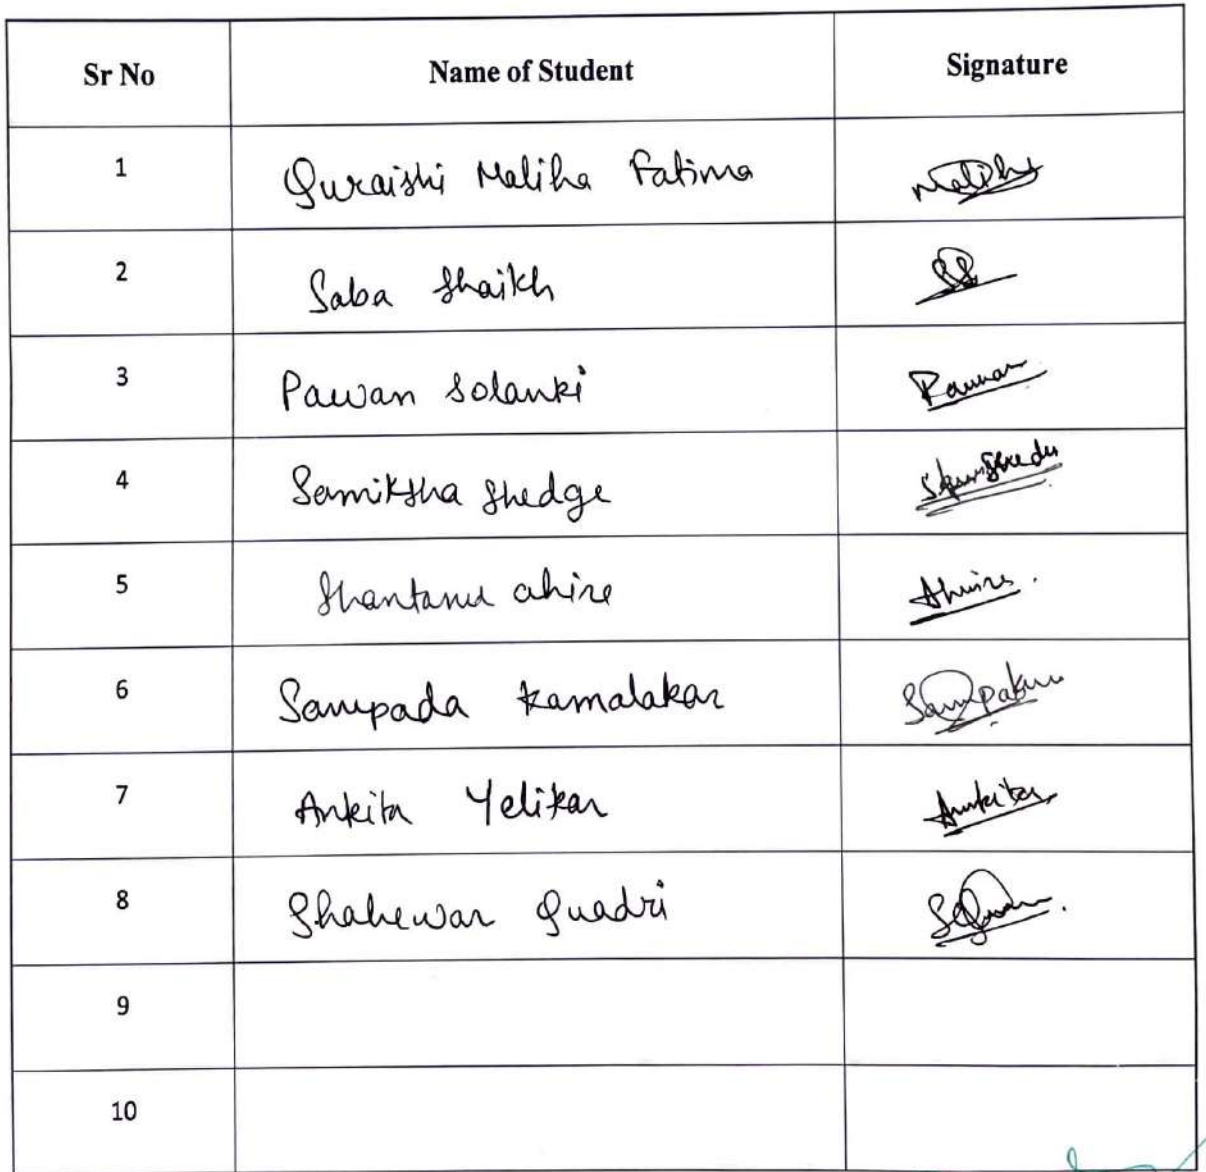 Sr No Name of Student Signature
1 Quraishi Maliha Fatima Maliha
2 Saba Shaikh SS
3 Pawan Solanki Pawan
4 Samiksha Shedge
5 Shantanu ahire Ahire.
6 Sampada Kamalakar
7 Ankita Yelikar Ankita
8 Shahewar Quadri
9
10